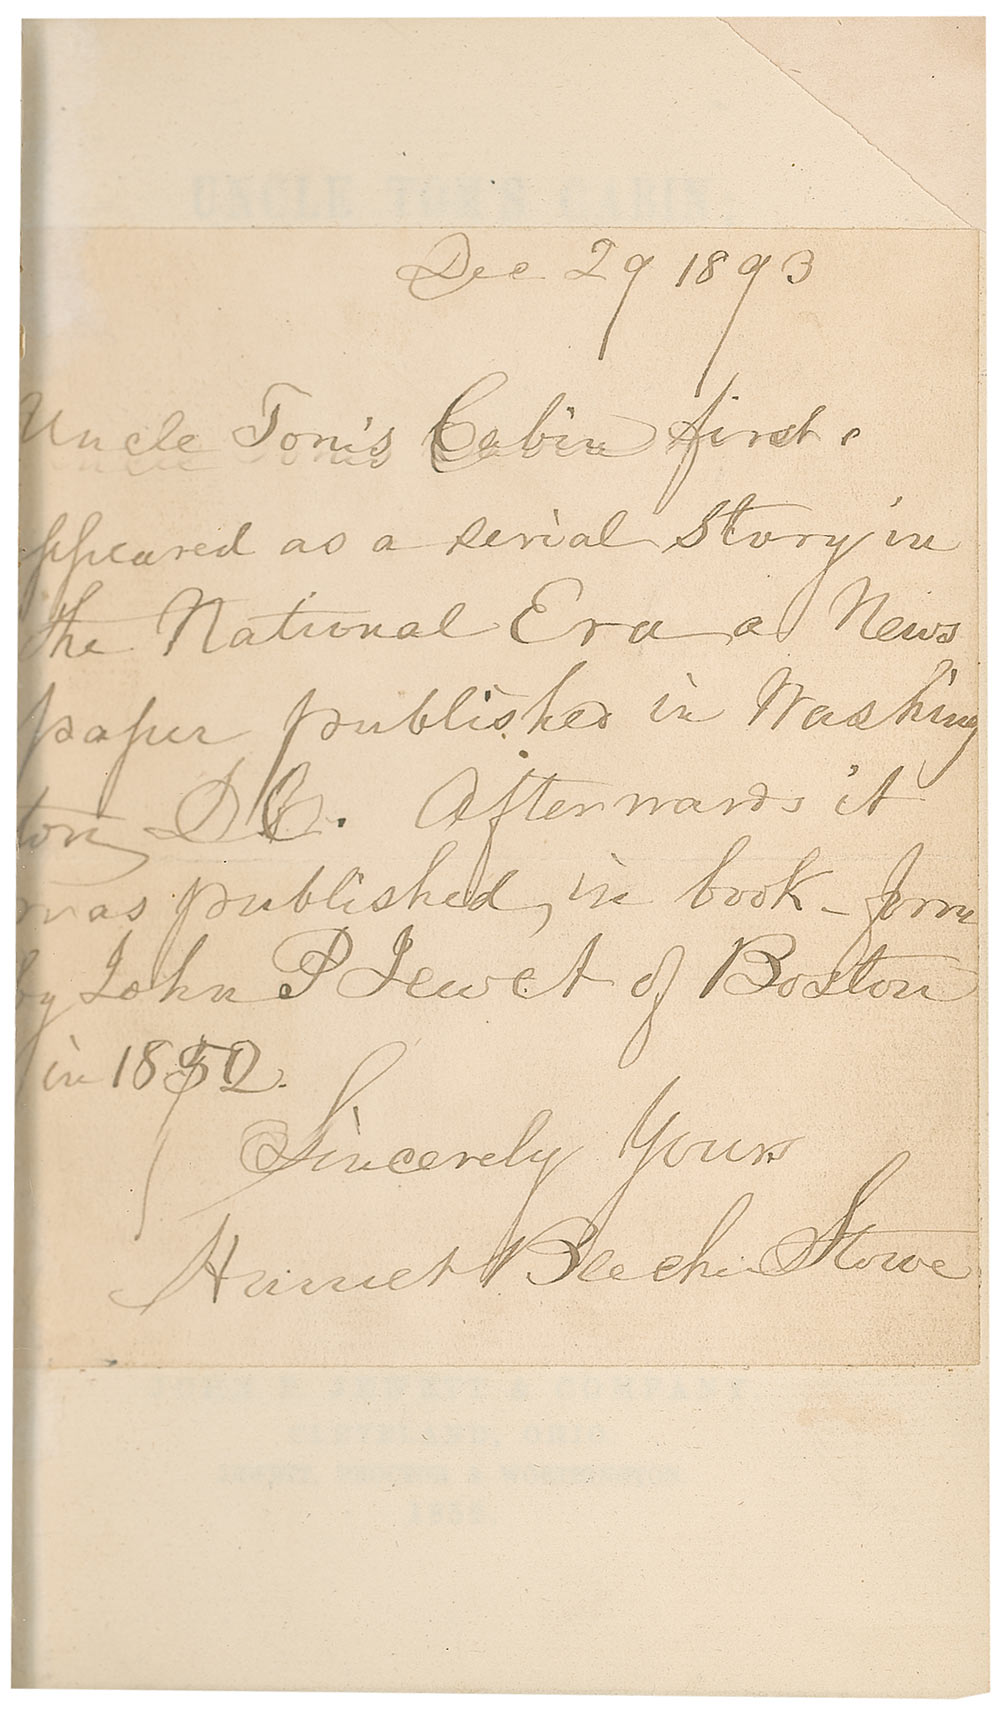 UNCLE TOM'S CABIN
Dec 29 1893
Uncle Tom's Cabin first
ppeared as a serial Story in
the National Era a News
paper published in Washing
ton D C. Afterwards it
was published, in book - form
by John P Jewet of Boston
in 1852.
Sincerely Yours
Harriet Beecher Stowe
CLEVELAND, OHIO